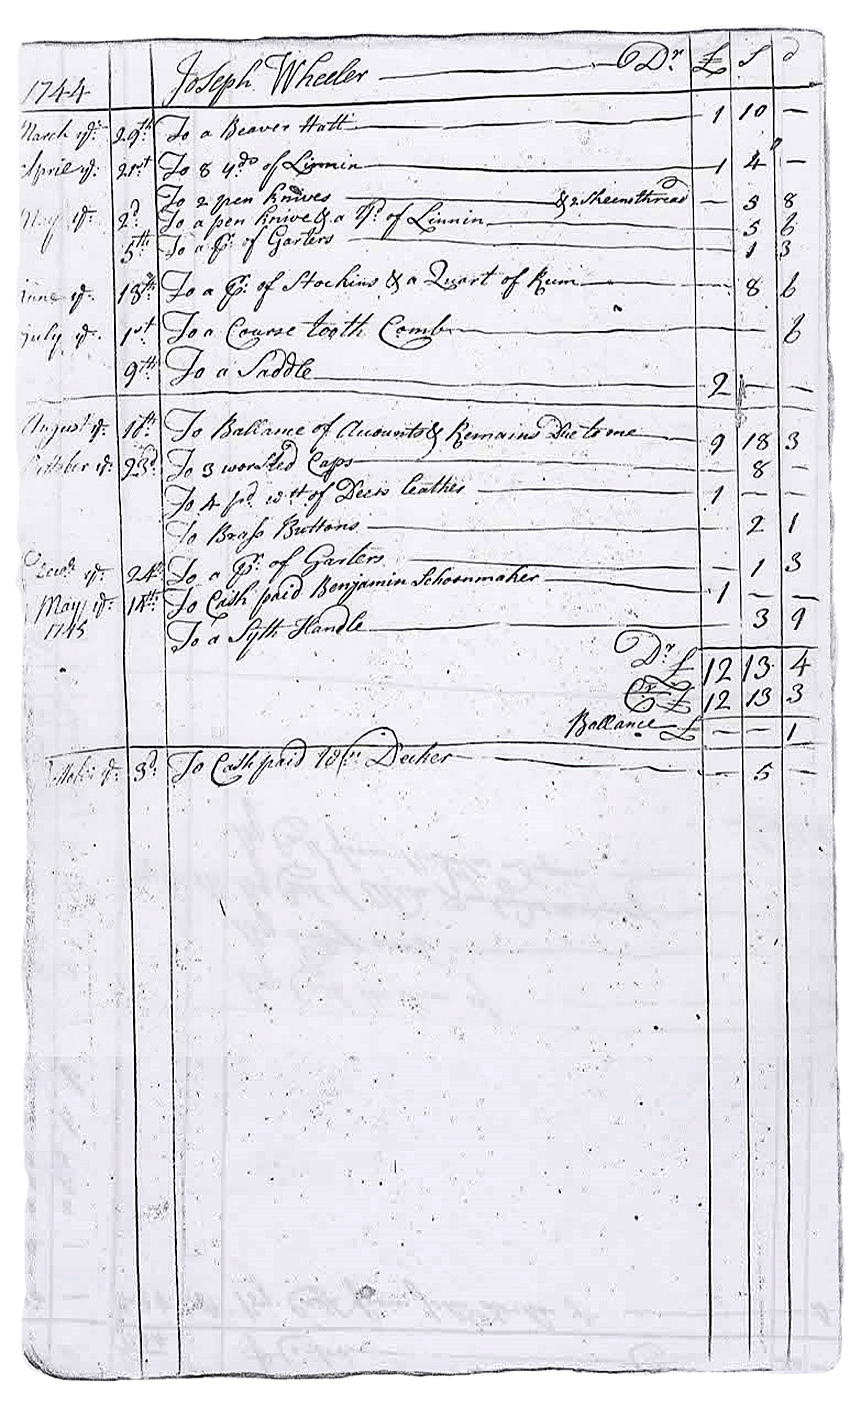 1744 Joseph Wheeler Dr £ s d
March ye 29th To a Beaver Hatt 1 10 —
April ye 21st To 8 yds of Linnin 1 4 —
To 2 pen knives & 2 Skeensthread — 3 8
May ye 2d To a pen knive & a yd of Linnin 5 6
5th To a pr of Garters 1 3
June ye 18th To a pr of Stockins & a Quart of Rum 8 6
July ye 1st To a Course tooth Comb 6
9th To a Saddle 2 — —
August ye To Ballance of Accounts & Remains Due to me 9 18 3
October ye 23d To 3 worsted Caps 8 —
To 4 pd wtt of Deers leather 1 — —
To Brass Buttons 2 1
Decemr ye 24th To a pr of Garters 1 3
May ye 14th To Cash paid Benjamin Schoonmaker 1 — —
1745 To a Syth Handle 3 9
Dr £ 12 13 4
Cr £ 12 13 3
Ballance £ — — 1
ye 3d To Cash paid Decker — 5 —